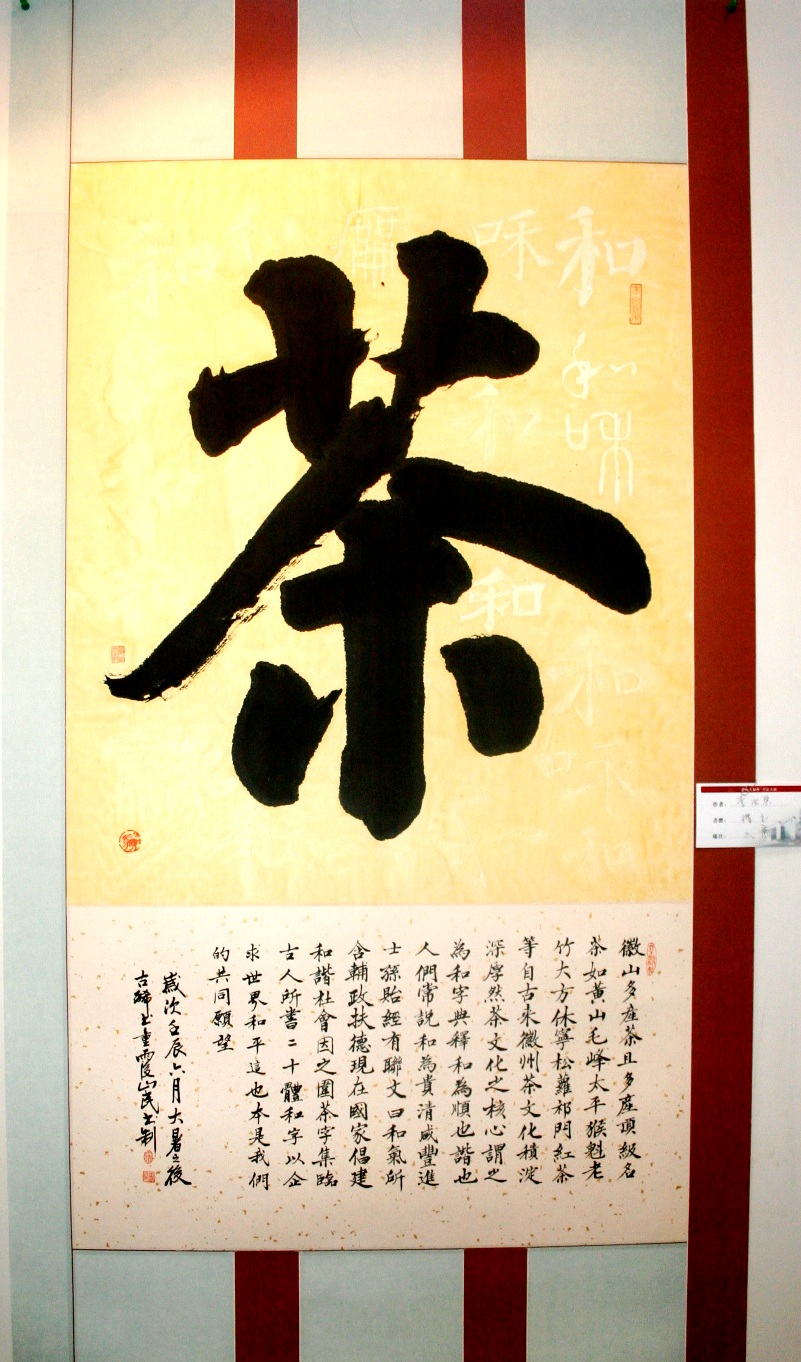 茶
和
和
味
咊
和
和
和
徽山多產茶且多產頂級名
茶如黃山毛峰太平猴魁老
竹大方休寧松蘿祁門紅茶
等自古來徽州茶文化積淀
深厚然茶文化之核心謂之
為和字典釋和為順也諧也
人們常説和為貴清咸豐進
士孫貽經有聯文曰和氣所
含輔政扶德現在國家倡建
和諧社會因之圍茶字集臨
古人所書二十體和字以企
求世界和平這也本是我們
的共同願望
歲次壬辰六月大暑之後